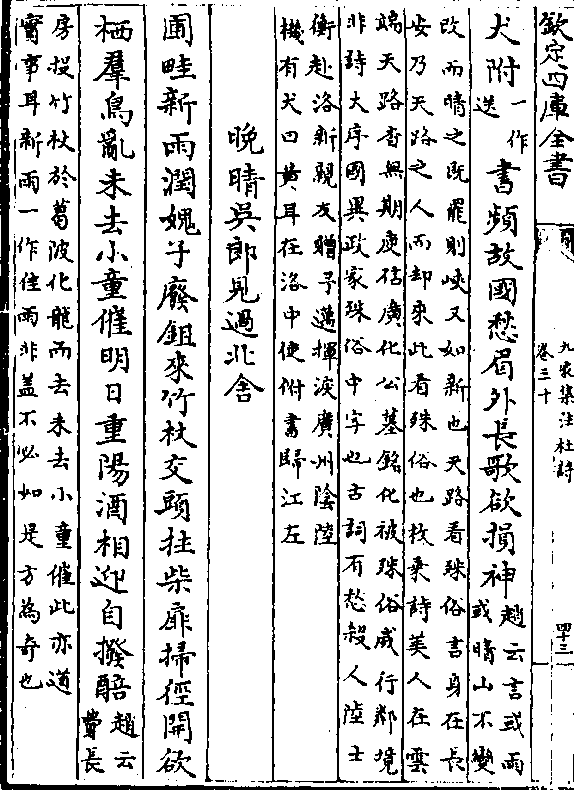 欽定四庫全書
九家集注杜詩
卷三十
四十三
犬附一作迭書頻故國愁眉外長歌欲損神趙云言或雨或晴山不變
改而晴之既罷則峽又如新也天路看殊俗言身在長
安乃天路之人而却來此看殊俗也枚乗詩美人在雲
端天路杳無期庾信廣化公墓銘化被殊俗威行鄰境
非詩大序國異政家殊俗中字也古詞有愁殺人陸士
衡赴洛新親友贈予邁揮淚廣州陰陸
機有犬曰黃耳在洛中使附書歸江左
晚晴吳郎見過北舍
圃畦新雨潤媿子廢鉏來竹杖交頭拄柴扉掃徑開欲
栖羣鳥亂未去小童催明日重陽酒相迎自撥醅趙云費長
房投竹杖於葛波化龍而去未去小童催此亦道
實事耳新雨一作佳雨非盖不必如是方為奇也